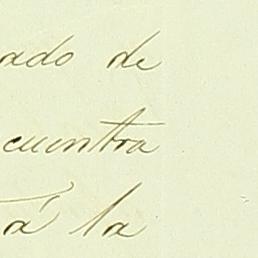 ado de
cuentra
á la